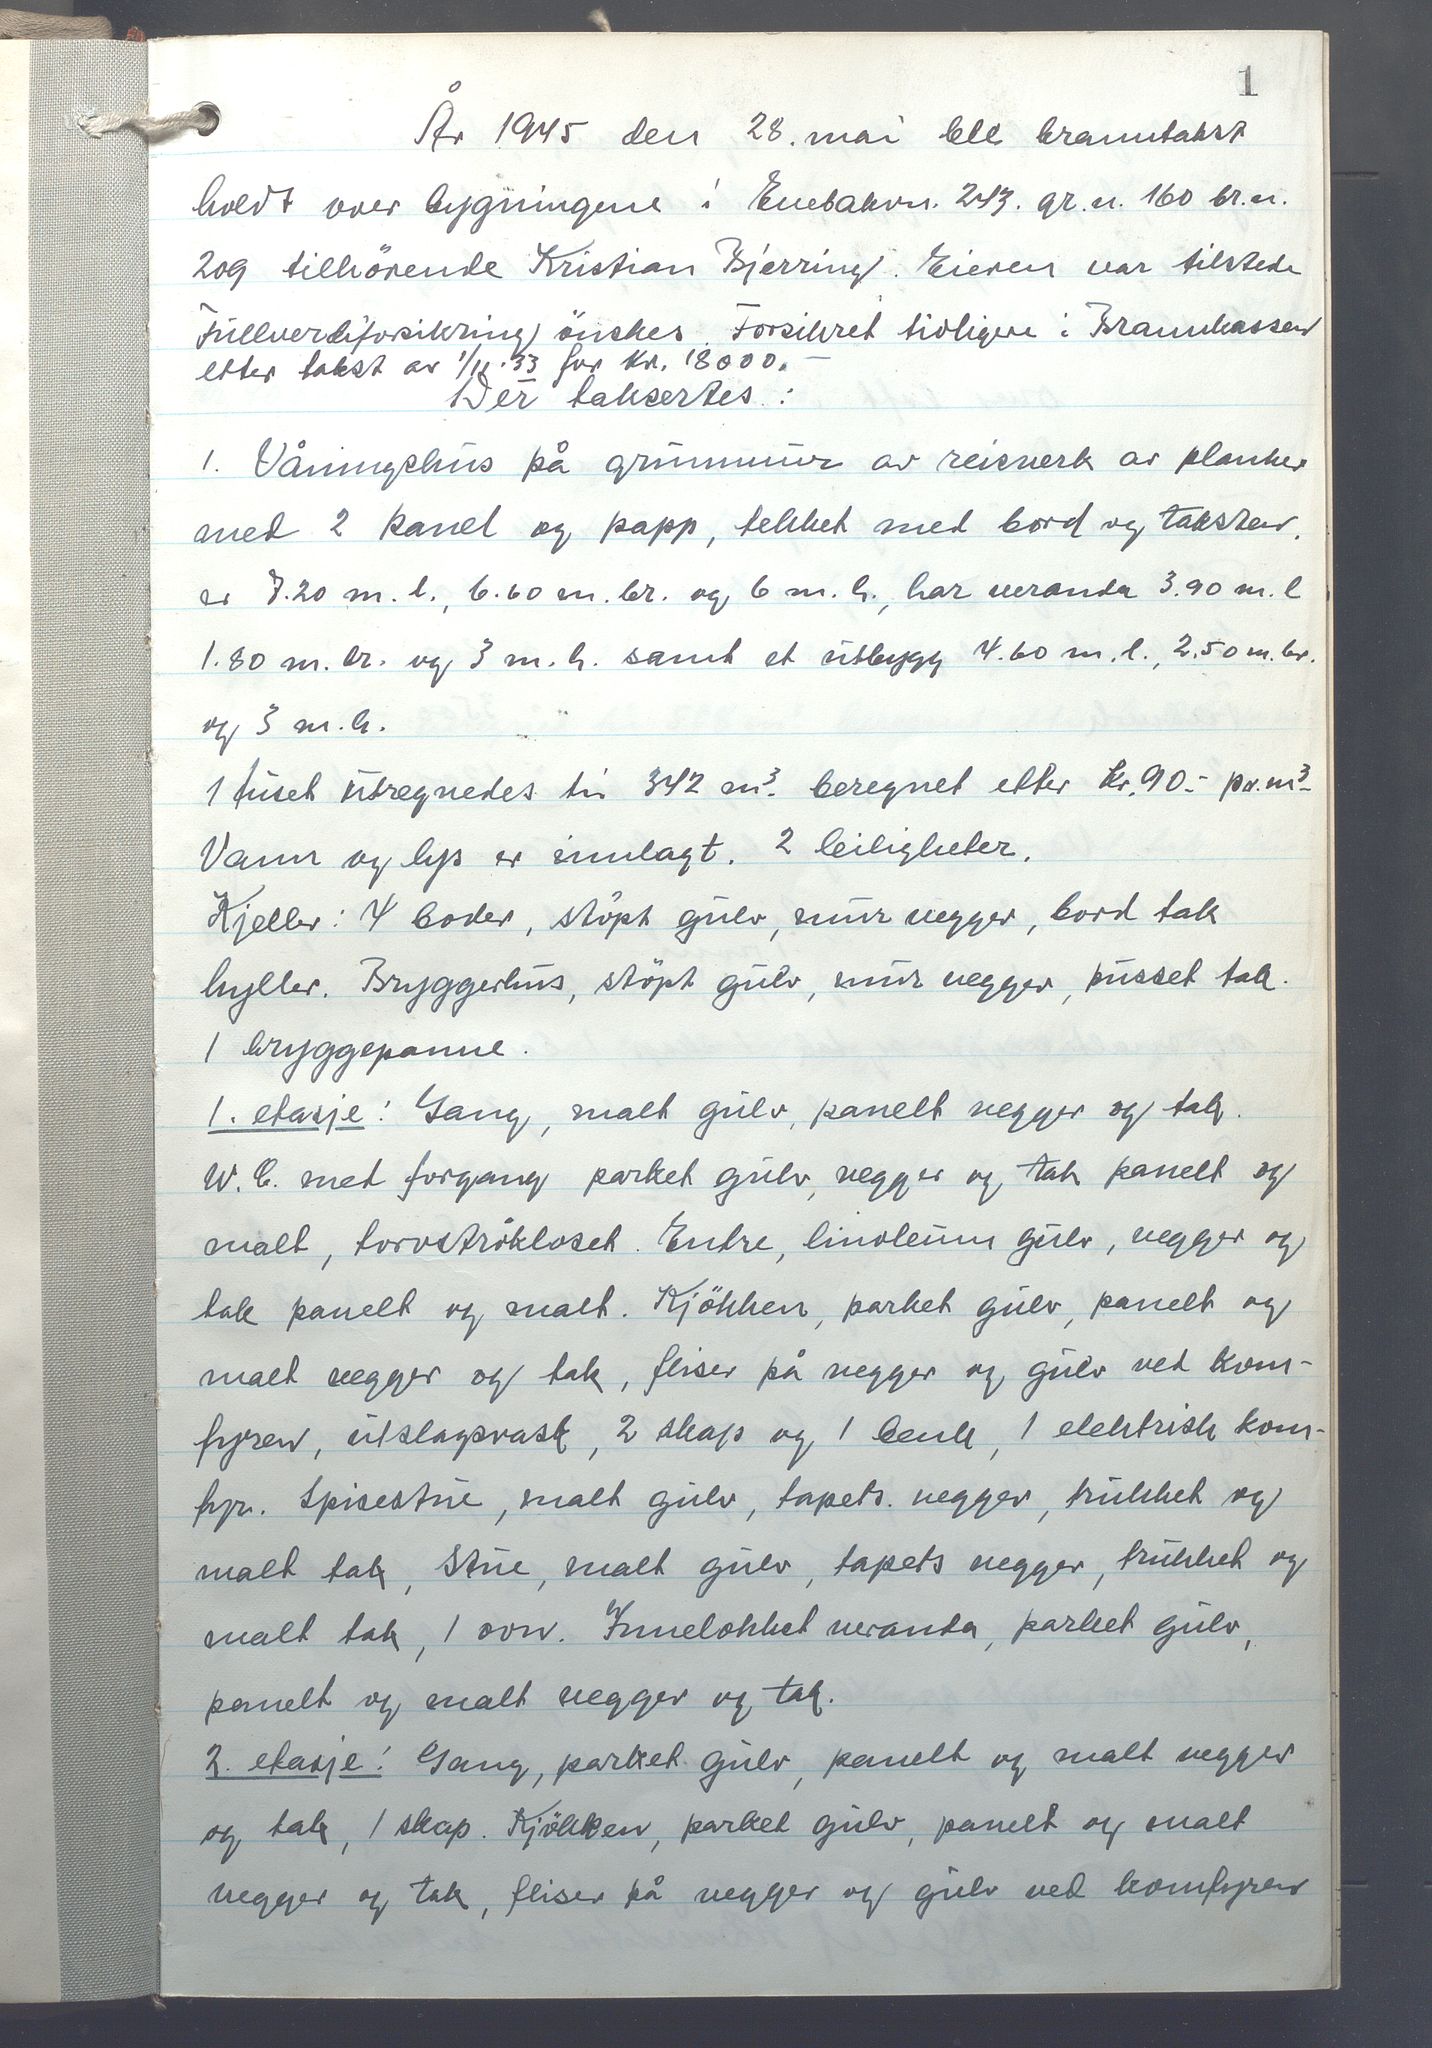 1
År 1945 den 28. mai ble branntakst
holdt over bygningene i Enebakvn. 243. gr.n. 160 br.n.
209 tilhörende Kristian Bjerring. Eieren var tilstede
Fullverdiforsikring önskes. Forsikret tidligere i Brannkassen
etter takst av 1/11.33 for kr. 18000.-
Der taksertes:
1. Våningshus på grunnmur av reisverk av planker
med 2 panel og papp, tekket med bord og taksten,
er 7.20 m.l., 6.60 m.br. og 6 m.h., har veranda 3.90 m.l
1.80 m.br. og 3 m.h. samt et utbygg 4.60 m.l., 2.50 m.br.
og 3 m.h.
Huset utregnedes til 342 m³. beregnet etter kr. 90.- pr.m³-
Vann og lys er innlagt. 2 leiligheter.
Kjeller: 4 boder, stöpt gulv, mur vegger, bord tak
hyller. Bryggerhus, stöpt gulv, mur vegger, pusset tak.
1 bryggepanne.
1. etasje: Gang, malt gulv, panelt vegger og tak.
W.C. med forgang parket gulv, vegger og tak panelt og
malt, torvströkloset. Entre, linoleum gulv, vegger og
tak panelt og malt. Kjökken, parket gulv, panelt og
malt vegger og tak, fliser på vegger og gulv ved kom-
fyren, utslagsvask, 2 skap og 1 benk, 1 elektrisk kom-
fyr. Spisestue, malt gulv, tapets. vegger, trukket og
malt tak, Stue, malt gulv, tapets vegger, trukket og
malt tak, 1 ovn. Innelukket veranda, parket gulv,
panelt og malt vegger og tak.
2. etasje: Gang, parket gulv, panelt og malt vegger
og tak, 1 skap. Kjökken, parket gulv, panelt og malt
vegger og tak, fliser på vegger og gulv ved komfyren